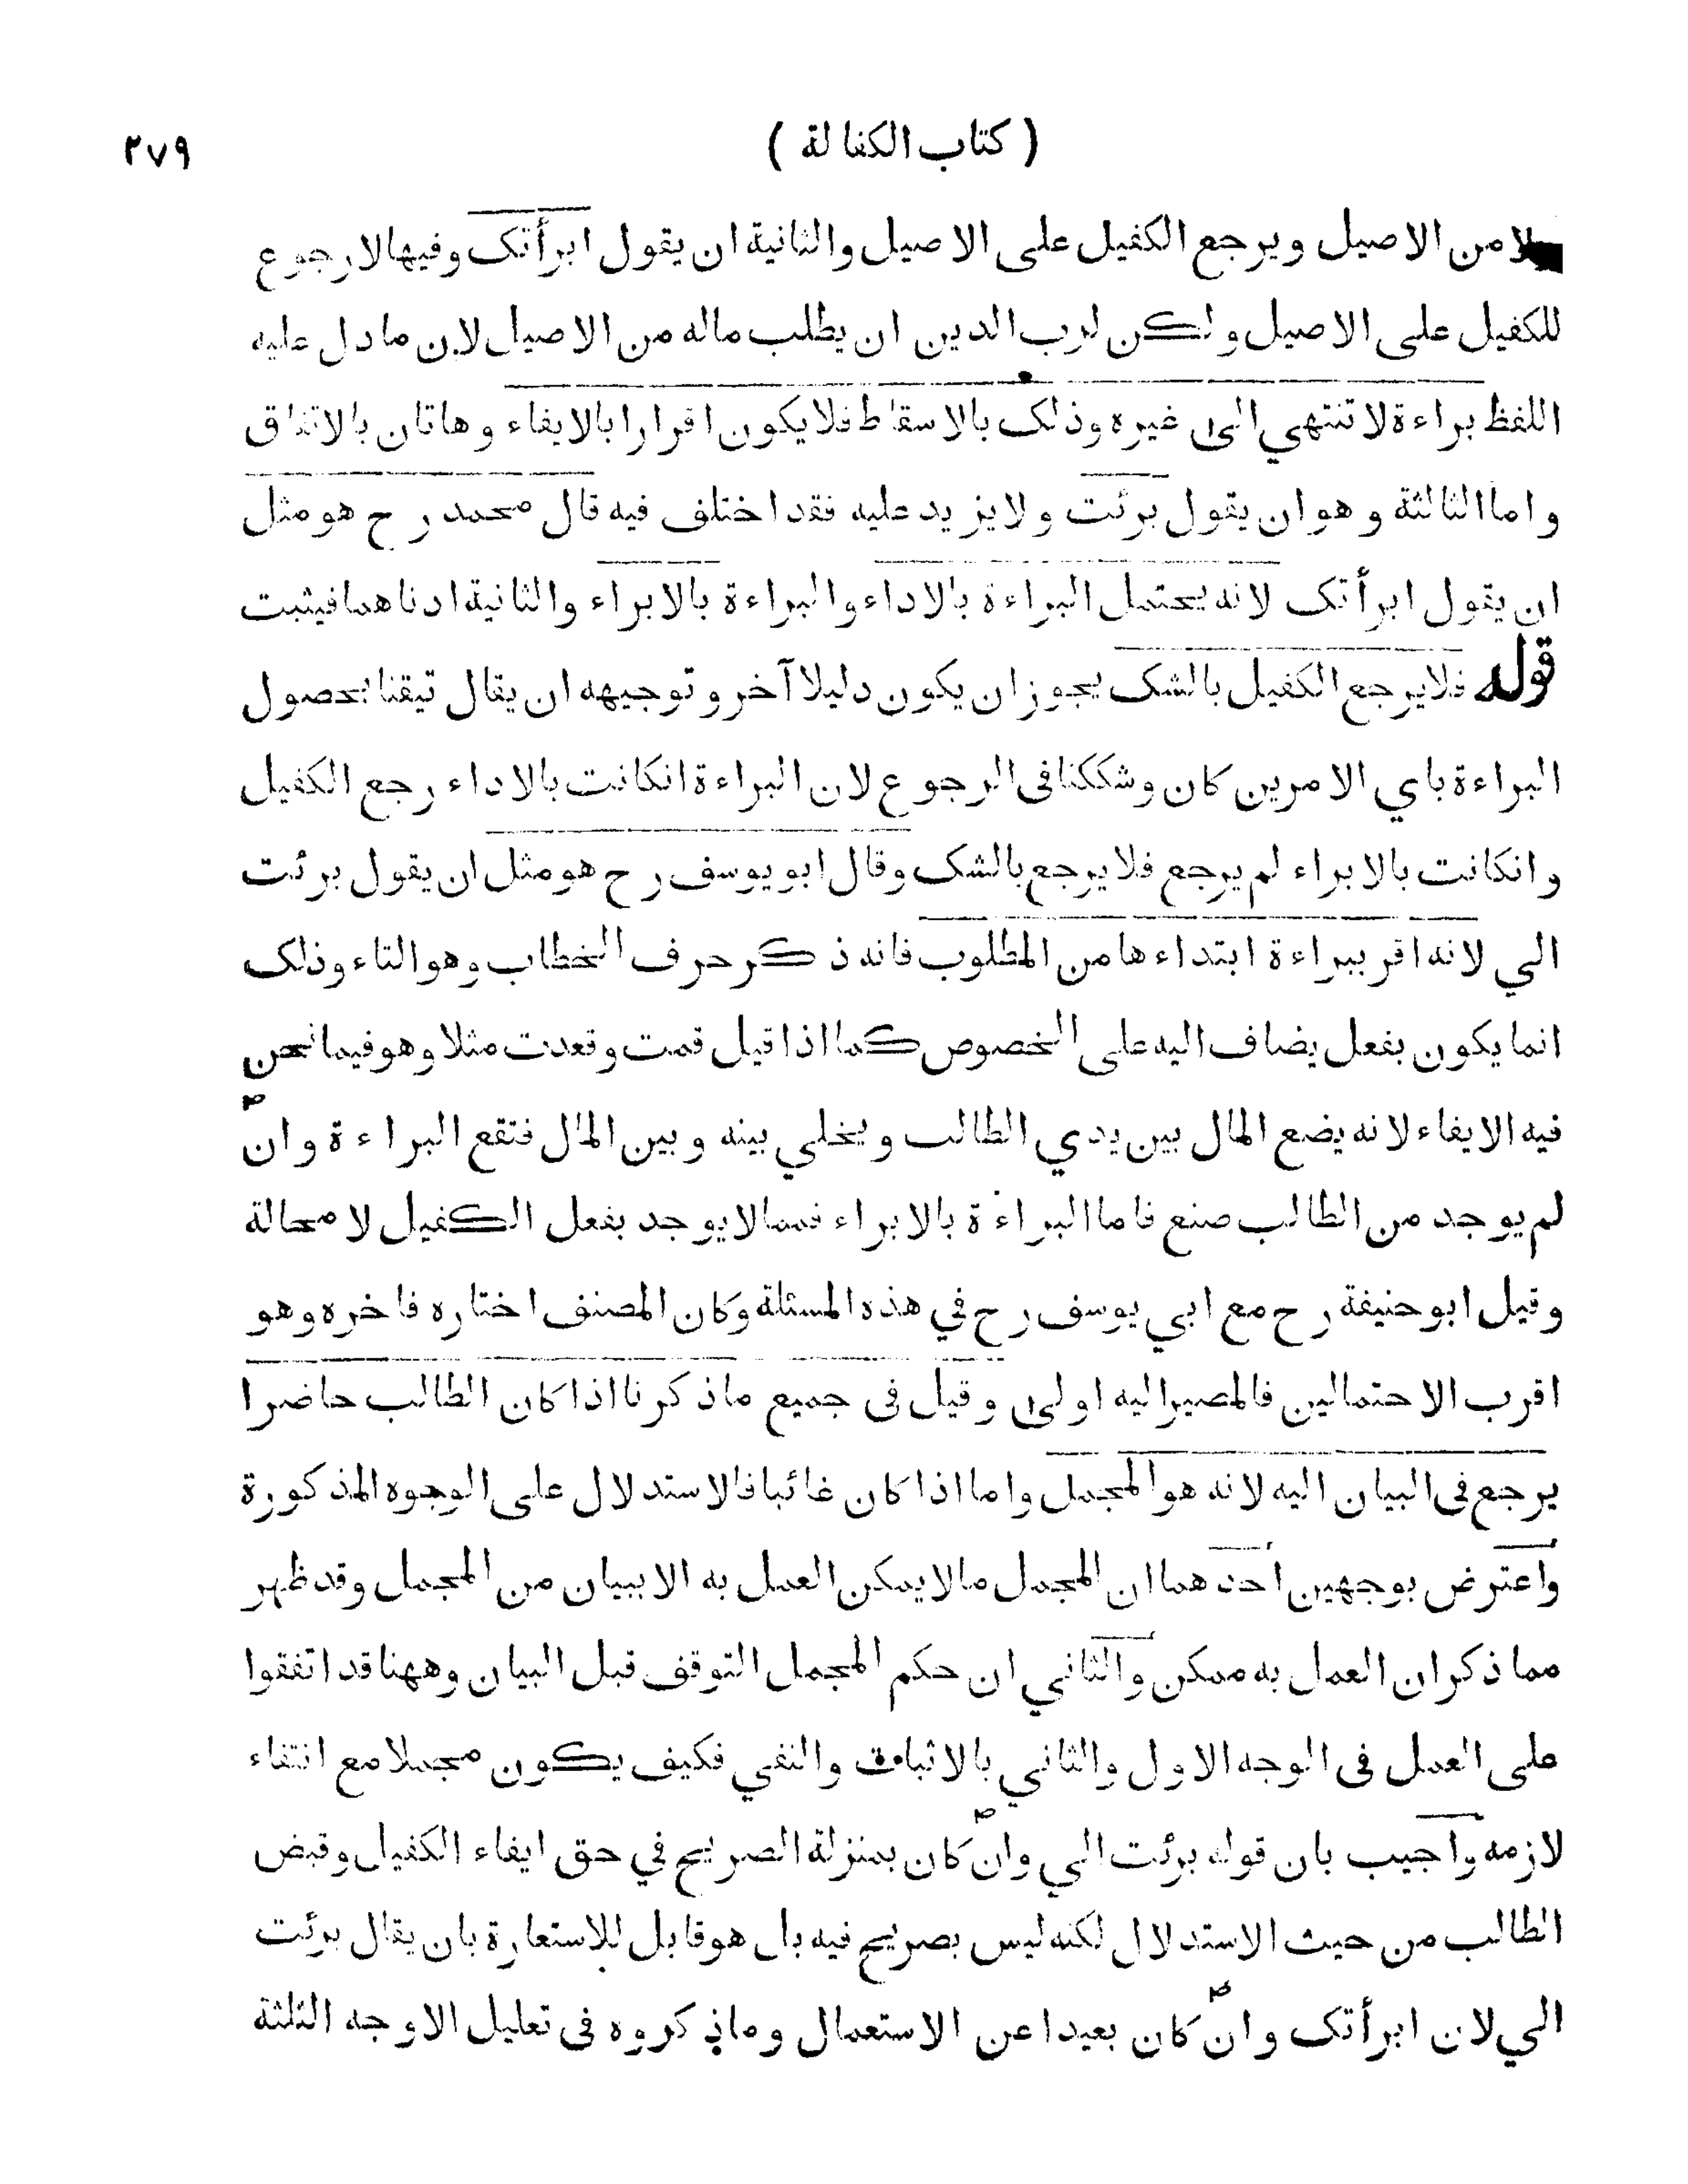 ( كتاب الكفالة ) ٢٧٩
لا من الاصيل ويرجع الكفيل على الاصيل والثانية ان يقول ابرأتك وفيها لا رجوع
للكفيل على الاصيل ولكن لرب الدين ان يطلب ماله من الاصيل لان ما دل عليه
اللفظ براءة لا تنتهي الى غيره وذلك بالاسقاط فلا يكون اقرارا بالايفاء وهاتان بالاتفاق
واما الثالثة وهو ان يقول برئت ولا يزيد عليه فقد اختلف فيه قال محمد رح هو مثل
ان يقول ابرأتك لانه يحتمل البراءة بالاداء والبراءة بالابراء والثانية ادناهما فيثبت
قوله فلا يرجع الكفيل بالشك يجوز ان يكون دليلا آخر وتوجيهه ان يقال تيقنا بحصول
البراءة باي الامرين كان وشككنا فى الرجوع لان البراءة انكانت بالاداء رجع الكفيل
وانكانت بالابراء لم يرجع فلا يرجع بالشك وقال ابو يوسف رح هو مثل ان يقول برئت
الي لانه اقر ببراءة ابتداءها من المطلوب فانه ذكر حرف الخطاب وهو التاء وذلك
انما يكون بفعل يضاف اليه على الخصوص كما اذا قيل قمت وقعدت مثلا وهو فيما نحن
فيه الايفاء لانه يضع المال بين يدي الطالب ويخلي بينه وبين المال فتقع البراءة وان
لم يوجد من الطالب صنع فاما البراءة بالابراء فمما لا يوجد بفعل الكفيل لا محالة
وقيل ابو حنيفة رح مع ابي يوسف رح في هذه المسئلة وكان المصنف اختاره فاخره وهو
اقرب الاحتمالين فالمصير اليه اولى وقيل فى جميع ما ذكرنا اذا كان الطالب حاضرا
يرجع فى البيان اليه لانه هو المجمل واما اذا كان غائبا فالاستدلال على الوجوه المذكورة
واعترض بوجهين احدهما ان المجمل ما لا يمكن العمل به الا ببيان من المجمل وقد ظهر
مما ذكر ان العمل به ممكن والثاني ان حكم المجمل التوقف قبل البيان وههنا قد اتفقوا
على العمل فى الوجه الاول والثاني بالاثبات والنفي فكيف يكون مجملا مع انتفاء
لازمه واجيب بان قوله برئت الي وان كان بمنزلة الصريح في حق ايفاء الكفيل وقبض
الطالب من حيث الاستدلال لكنه ليس بصريح فيه بل هو قابل للاستعارة بان يقال برئت
الي لان ابرأتك وان كان بعيدا عن الاستعمال وما ذكروه فى تعليل الاوجه الثلثة